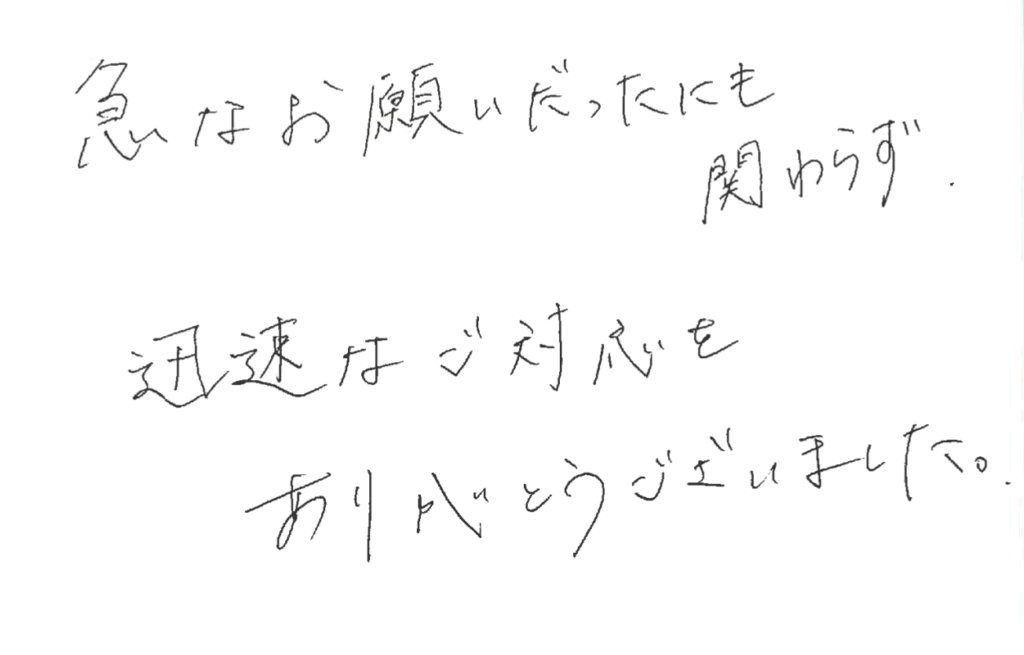 急なお願いだったにも
関わらず.
迅速なご対応を
ありがとうございました。